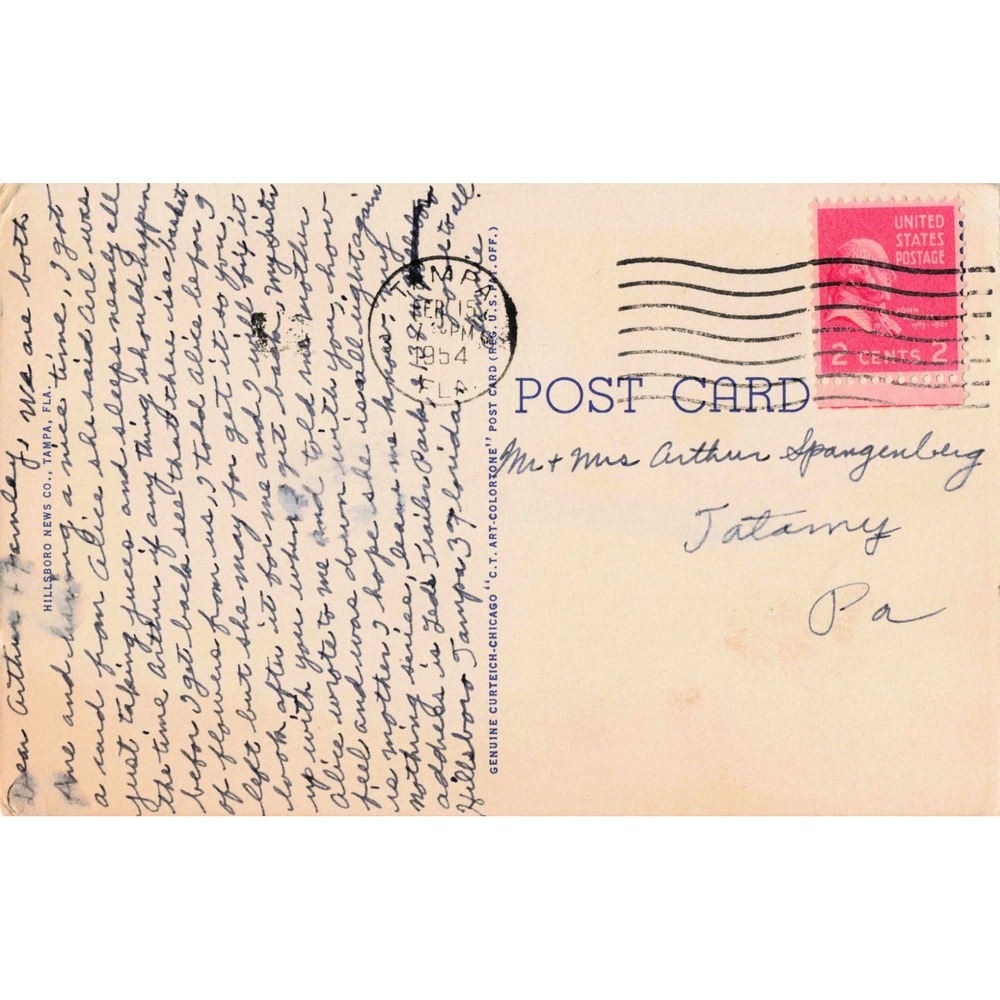 Dear Arthur & Family, We are both
fine and having a nice time, I got
a card from Alice she said Arl was
just taking juices and sleeps nearly all
the time Arthur if any thing should happen
befor I get back see that there is a basket
of flowers from us, I told Alice befor I
left but she may for get it so you fix it
look after it for me and I will fix it
up with you when I get back. My Sister
Alice wrote to me and told me mother
fell and was down with you, how
is mother, I hope she is all right again
nothing serise, leave me know, my
address is Leds Trailer Park,
Hillsboro Tampa 3 Florida. to all
HILLSBORO NEWS CO., TAMPA, FLA.
GENUINE CURTEICH-CHICAGO "C.T. ART-COLORTONE" POST CARD (REG. U.S. PAT. OFF.)
TAMPA
FEB 15
PM
1954
FLA
UNITED
STATES
POSTAGE
JOHN
2 CENTS 2
POST CARD
Mr + Mrs Arthur Spangenberg
Tatamy
Pa